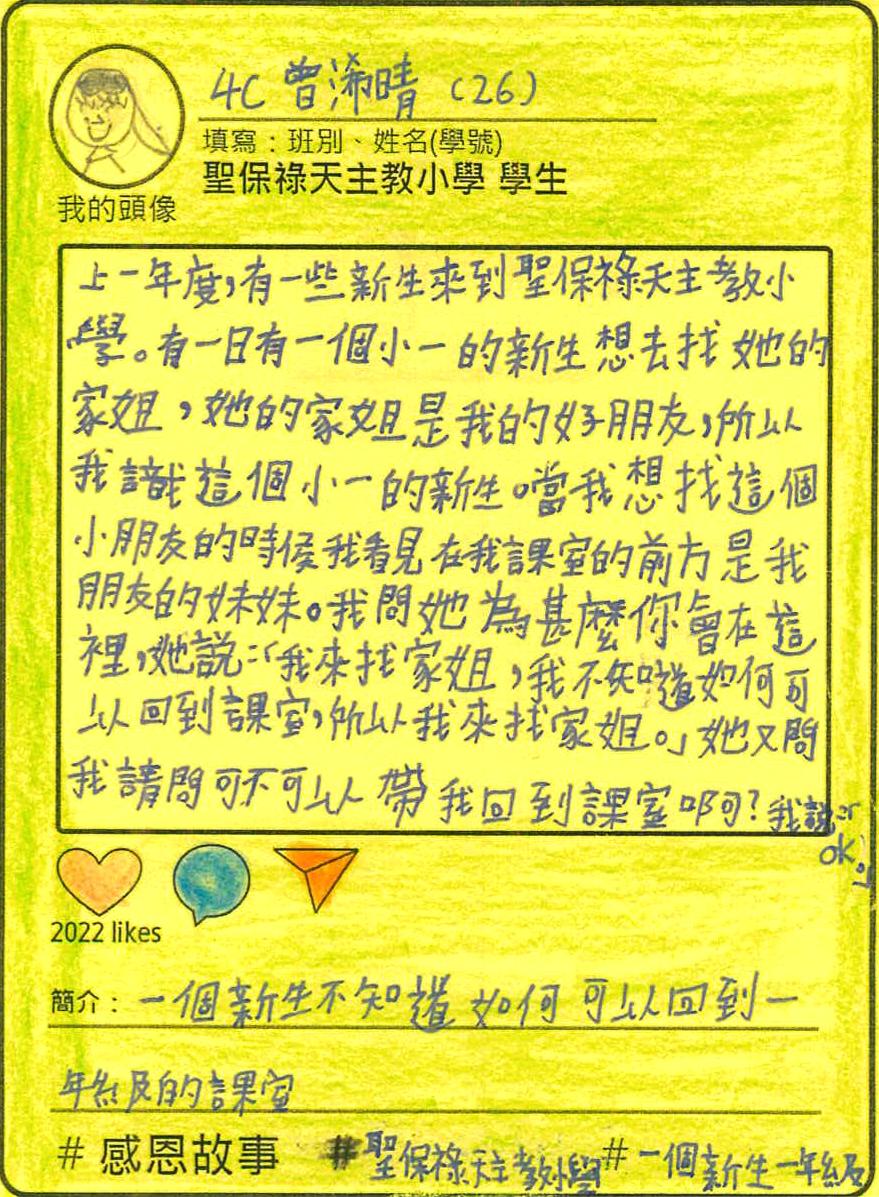 4C 曾浠晴 (26)
填寫：班別、姓名(學號)
聖保祿天主教小學 學生
我的頭像
上一年度，有一些新生來到聖保祿天主教小
學。有一日有一個小一的新生想去找她的
家姐，她的家姐是我的好朋友，所以
我識這個小一的新生。當我想找這個
小朋友的時侯我看見在我課室的前方是我
朋友的妹妹。我問她為甚麼你會在這
裡，她說：「我來找家姐，我不知道如何可
以回到課室，所以我來找家姐。」她又問
我請問可不可以帶我回到課室啊？我說：「
OK。」
2022 likes
簡介：一個新生不知道如何可以回到一
年級的課室
# 感恩故事 #聖保祿天主教小學 # 一個新生一年級